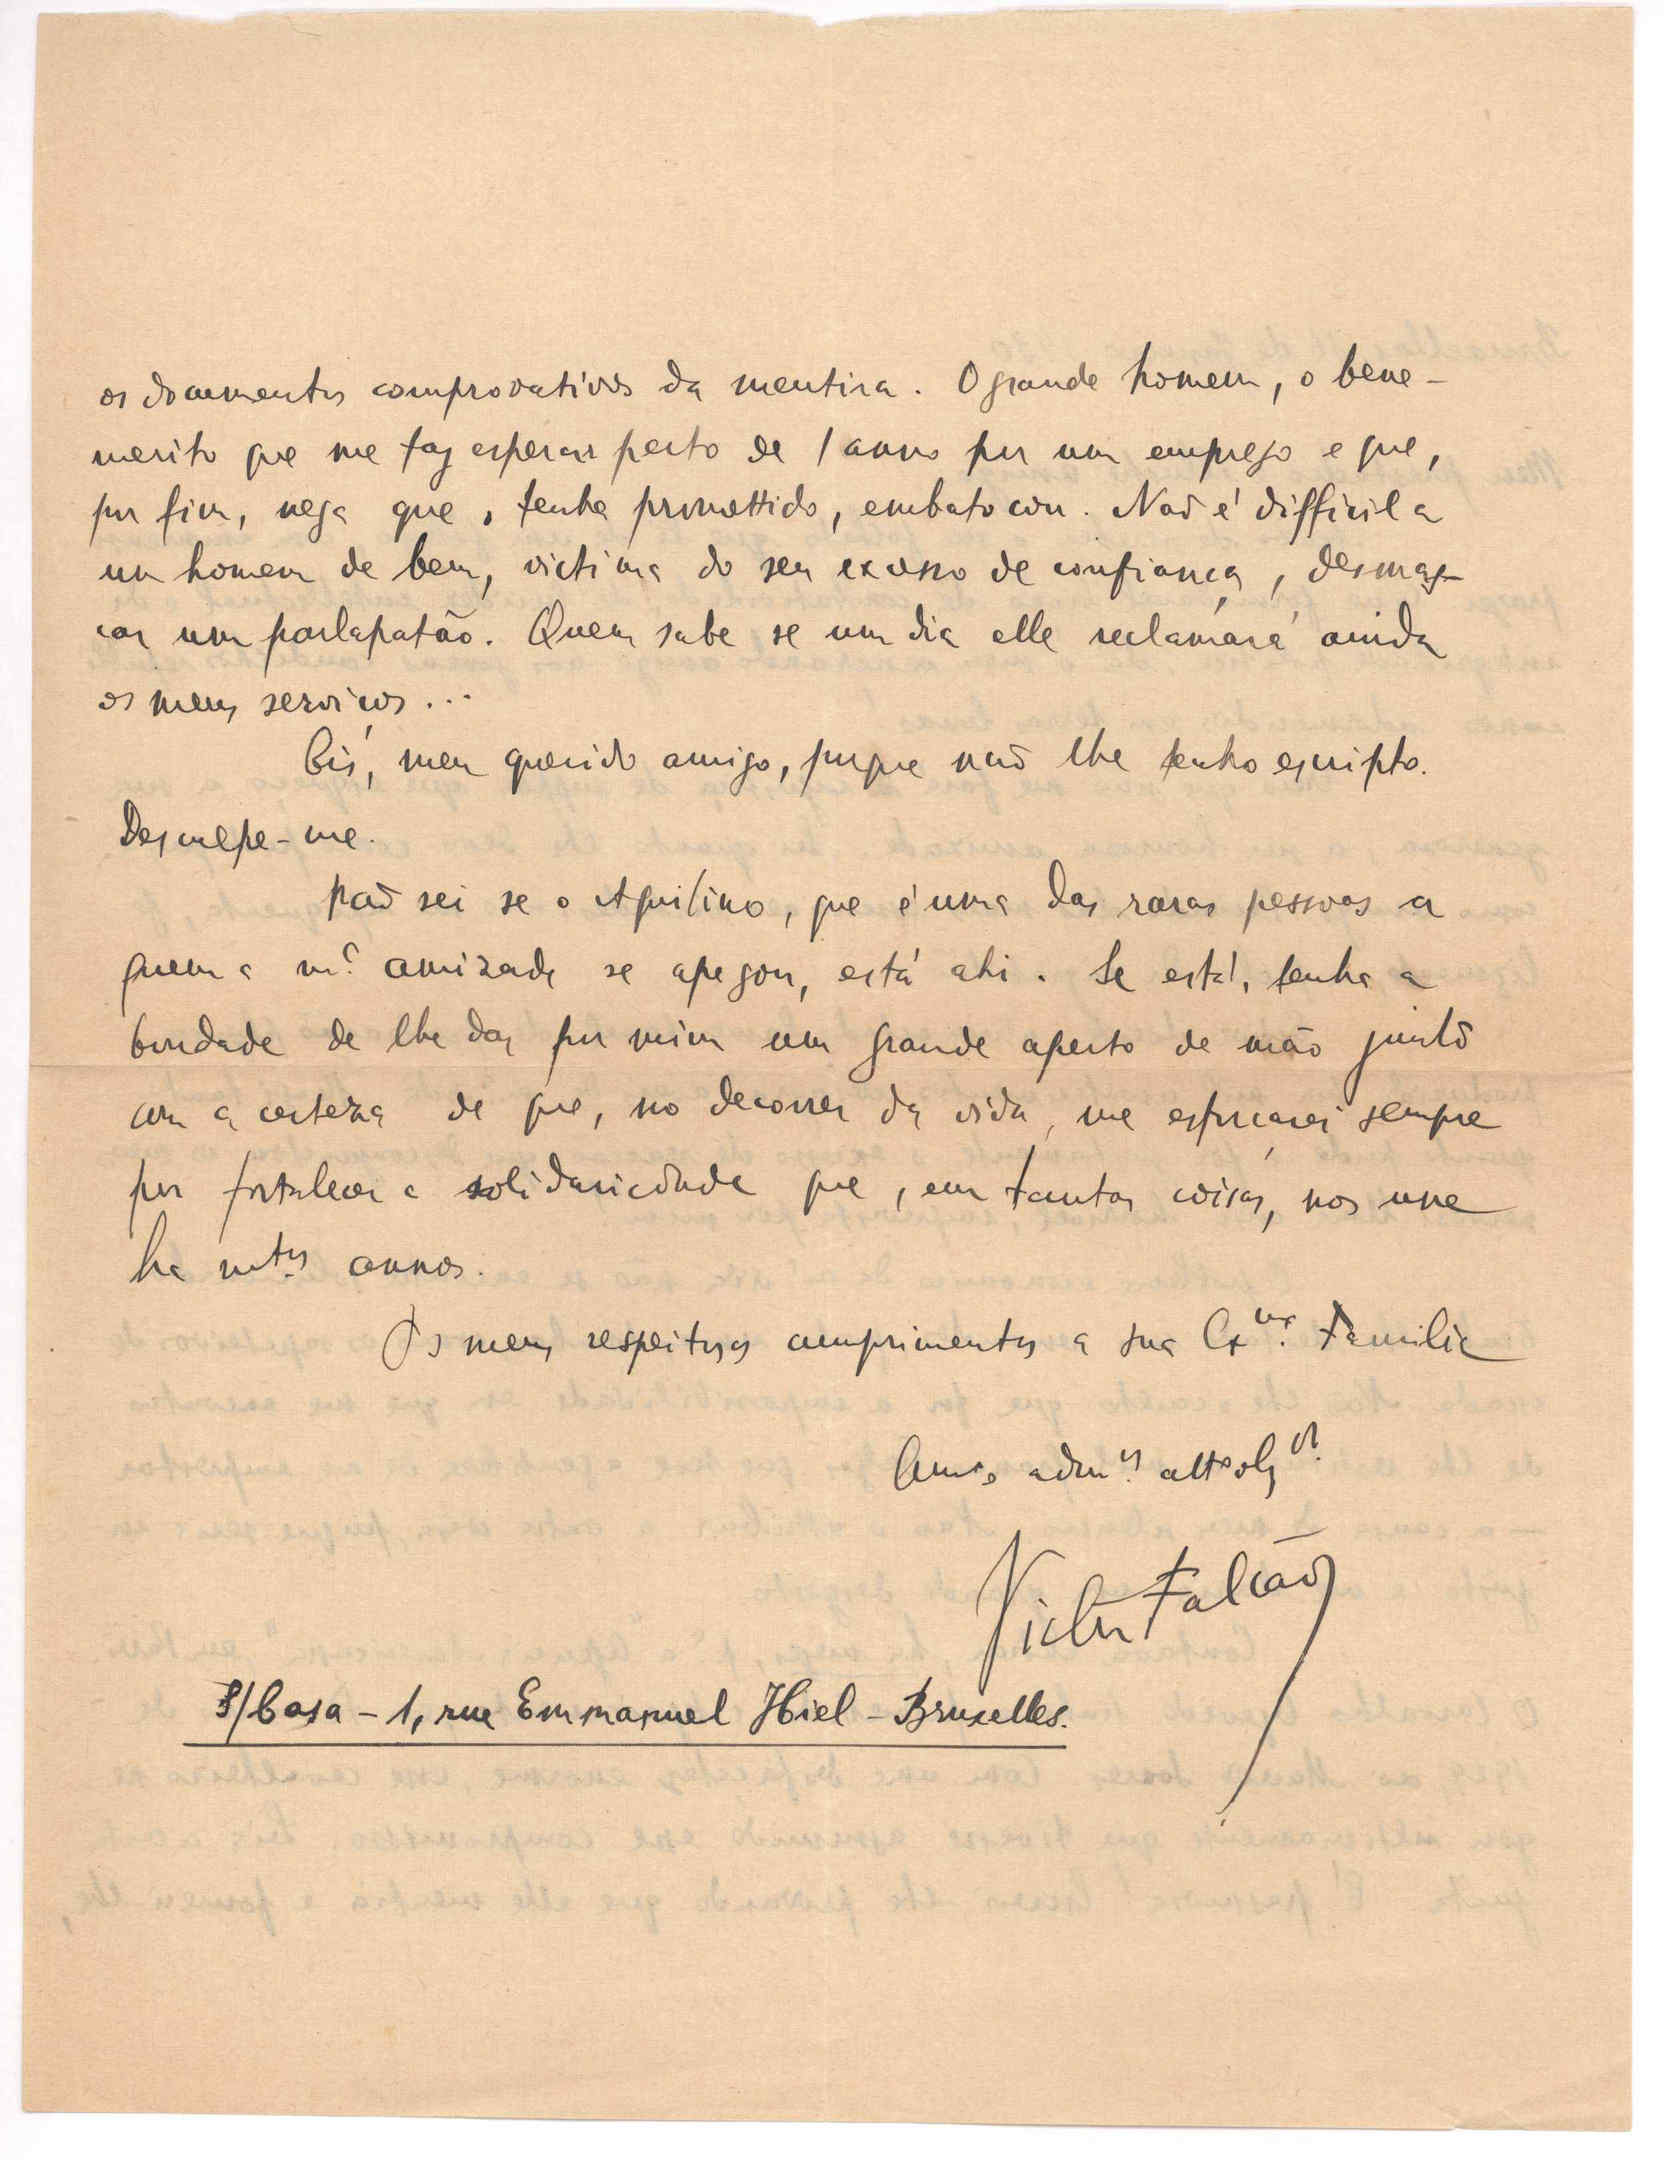 os documentos comprovativos da mentira. O grande homem, o bene-
merito que me faz esperar perto de 1 anno por um emprego e que,
por fim, nega que o tenha promettido, embatocou. Naõ é difficil a
um homem de bem, victima do seu excesso de confiança, desmas-
car um parlapatão. Quem sabe se um dia elle reclamará ainda
os meus serviços...
Eis, meu querido amigo, porque naõ lhe tenho escripto.
Desculpe-me.
Naõ sei se o Aquilino, que é uma das raras pessoas a
quem a m.ª amizade se apegou, está ahi. Se está, tenha a
bondade de lhe dar por mim um grande aperto de mão junto
com a certeza de que, no decorrer da vida, me esforçarei sempre
por fortalecer a solidariedade que, em tantas coisas, nos une
ha m.tos annos.
Os meus respeitosos cumprimentos a sua Ex.ma Familia
Amº adm.or attº obg.do
Victor Falcaõ
S/Casa - 1, rue Emmanuel Hiel - Bruxelles.